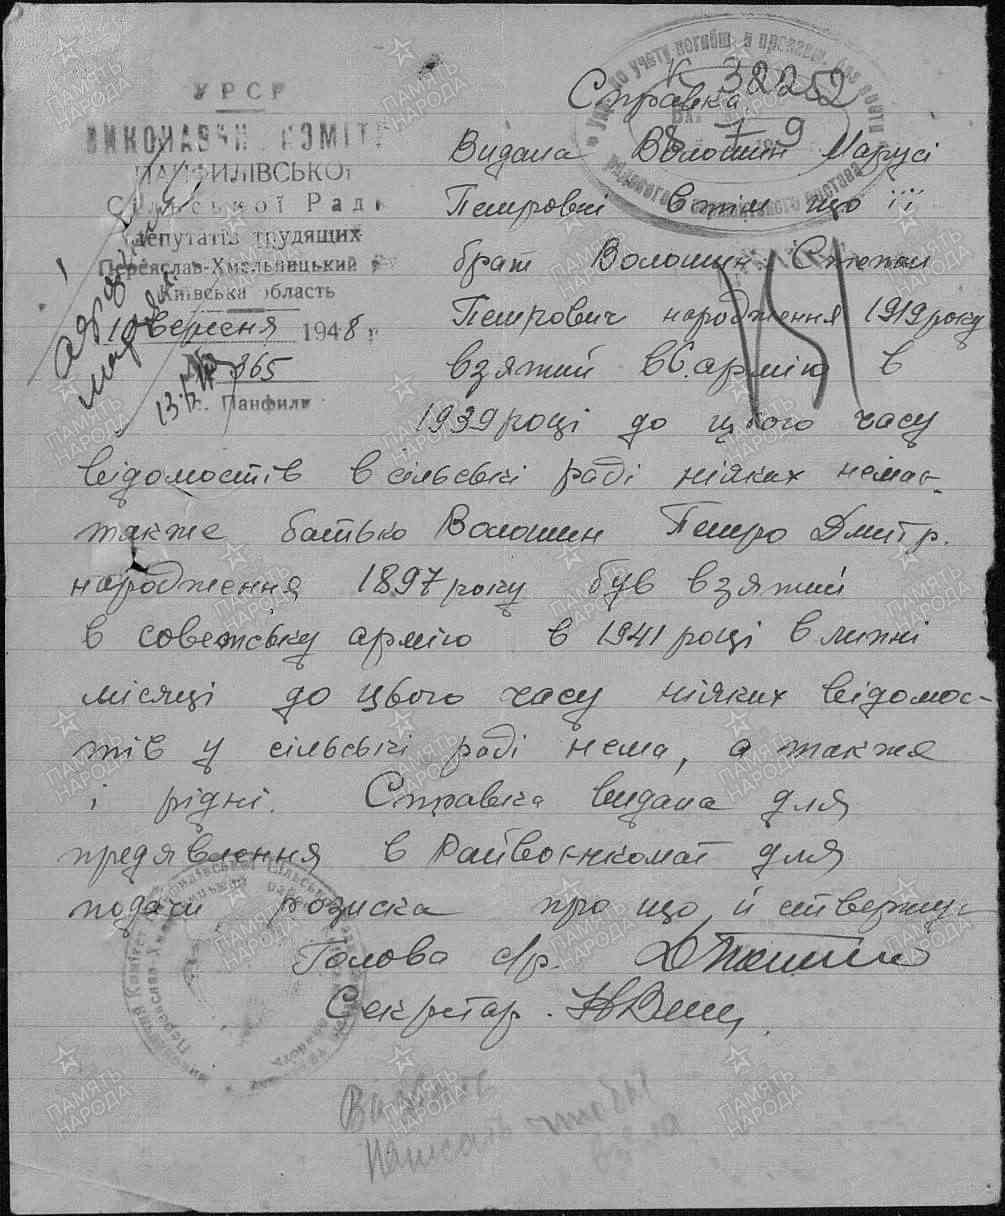 УРСР
ВИКОНАВЧИ КОМІТЕ
ПАНФИЛІВСЬКОЇ
Сільської Ради
депутатів трудящих
Переяслав-Хмельницький
Київська область
10 вересня 1948 р
№ 865
с. Панфили
13.I.
к 32252
Справка
Видана Волошин Марусі
Петровні в тім що її
брат Волошин Степан
Петрович народження 1919 року
взятий в С. армію в
1939 році до цього часу
відомостів в сільські раді ніяких немає
также батько Волошин Петро Дмитр.
народження 1897 року був взятий
в советську армію в 1941 році в липні
місяці до цього часу ніяких відомос-
тів у сільські раді нема, а также
і рідні. Справка видана для
предявлення в Райвоєнкомат для
подачи розиска про що й ствержує
Голова с/р.
Секретар.
написать чтобы